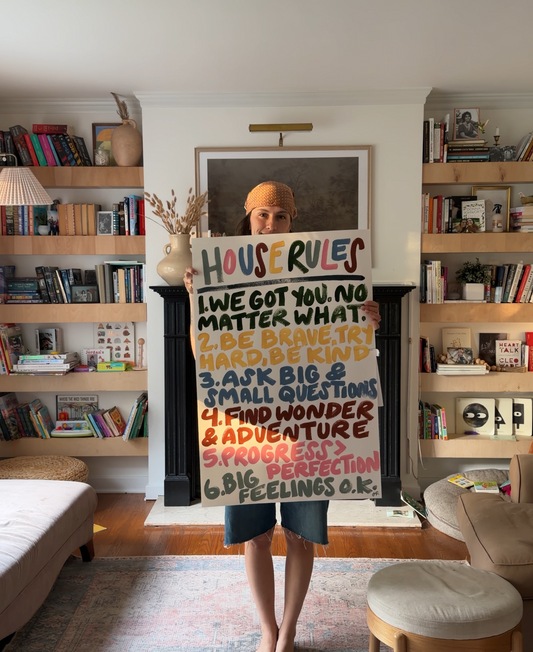 HOUSE RULES
1. WE GOT YOU. NO
MATTER WHAT.
2. BE BRAVE, TRY
HARD, BE KIND
3. ASK BIG &
SMALL QUESTIONS
4. FIND WONDER
& ADVENTURE
5. PROGRESS >
PERFECTION
6. BIG
FEELINGS O.K.
HEART
TALK
CLEO